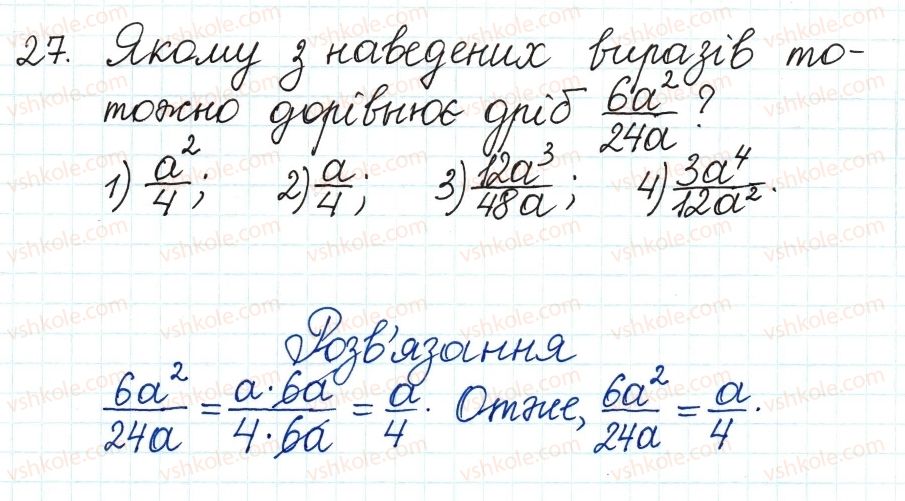 27. Якому з наведених виразів то-
тожно дорівнює дріб 6a²/24a?
1) a²/4; 2) a/4; 3) 12a³/48a; 4) 3a⁴/12a².
Розв'язання
6a²/24a = a·6a/4·6a = a/4. Отже, 6a²/24a = a/4.